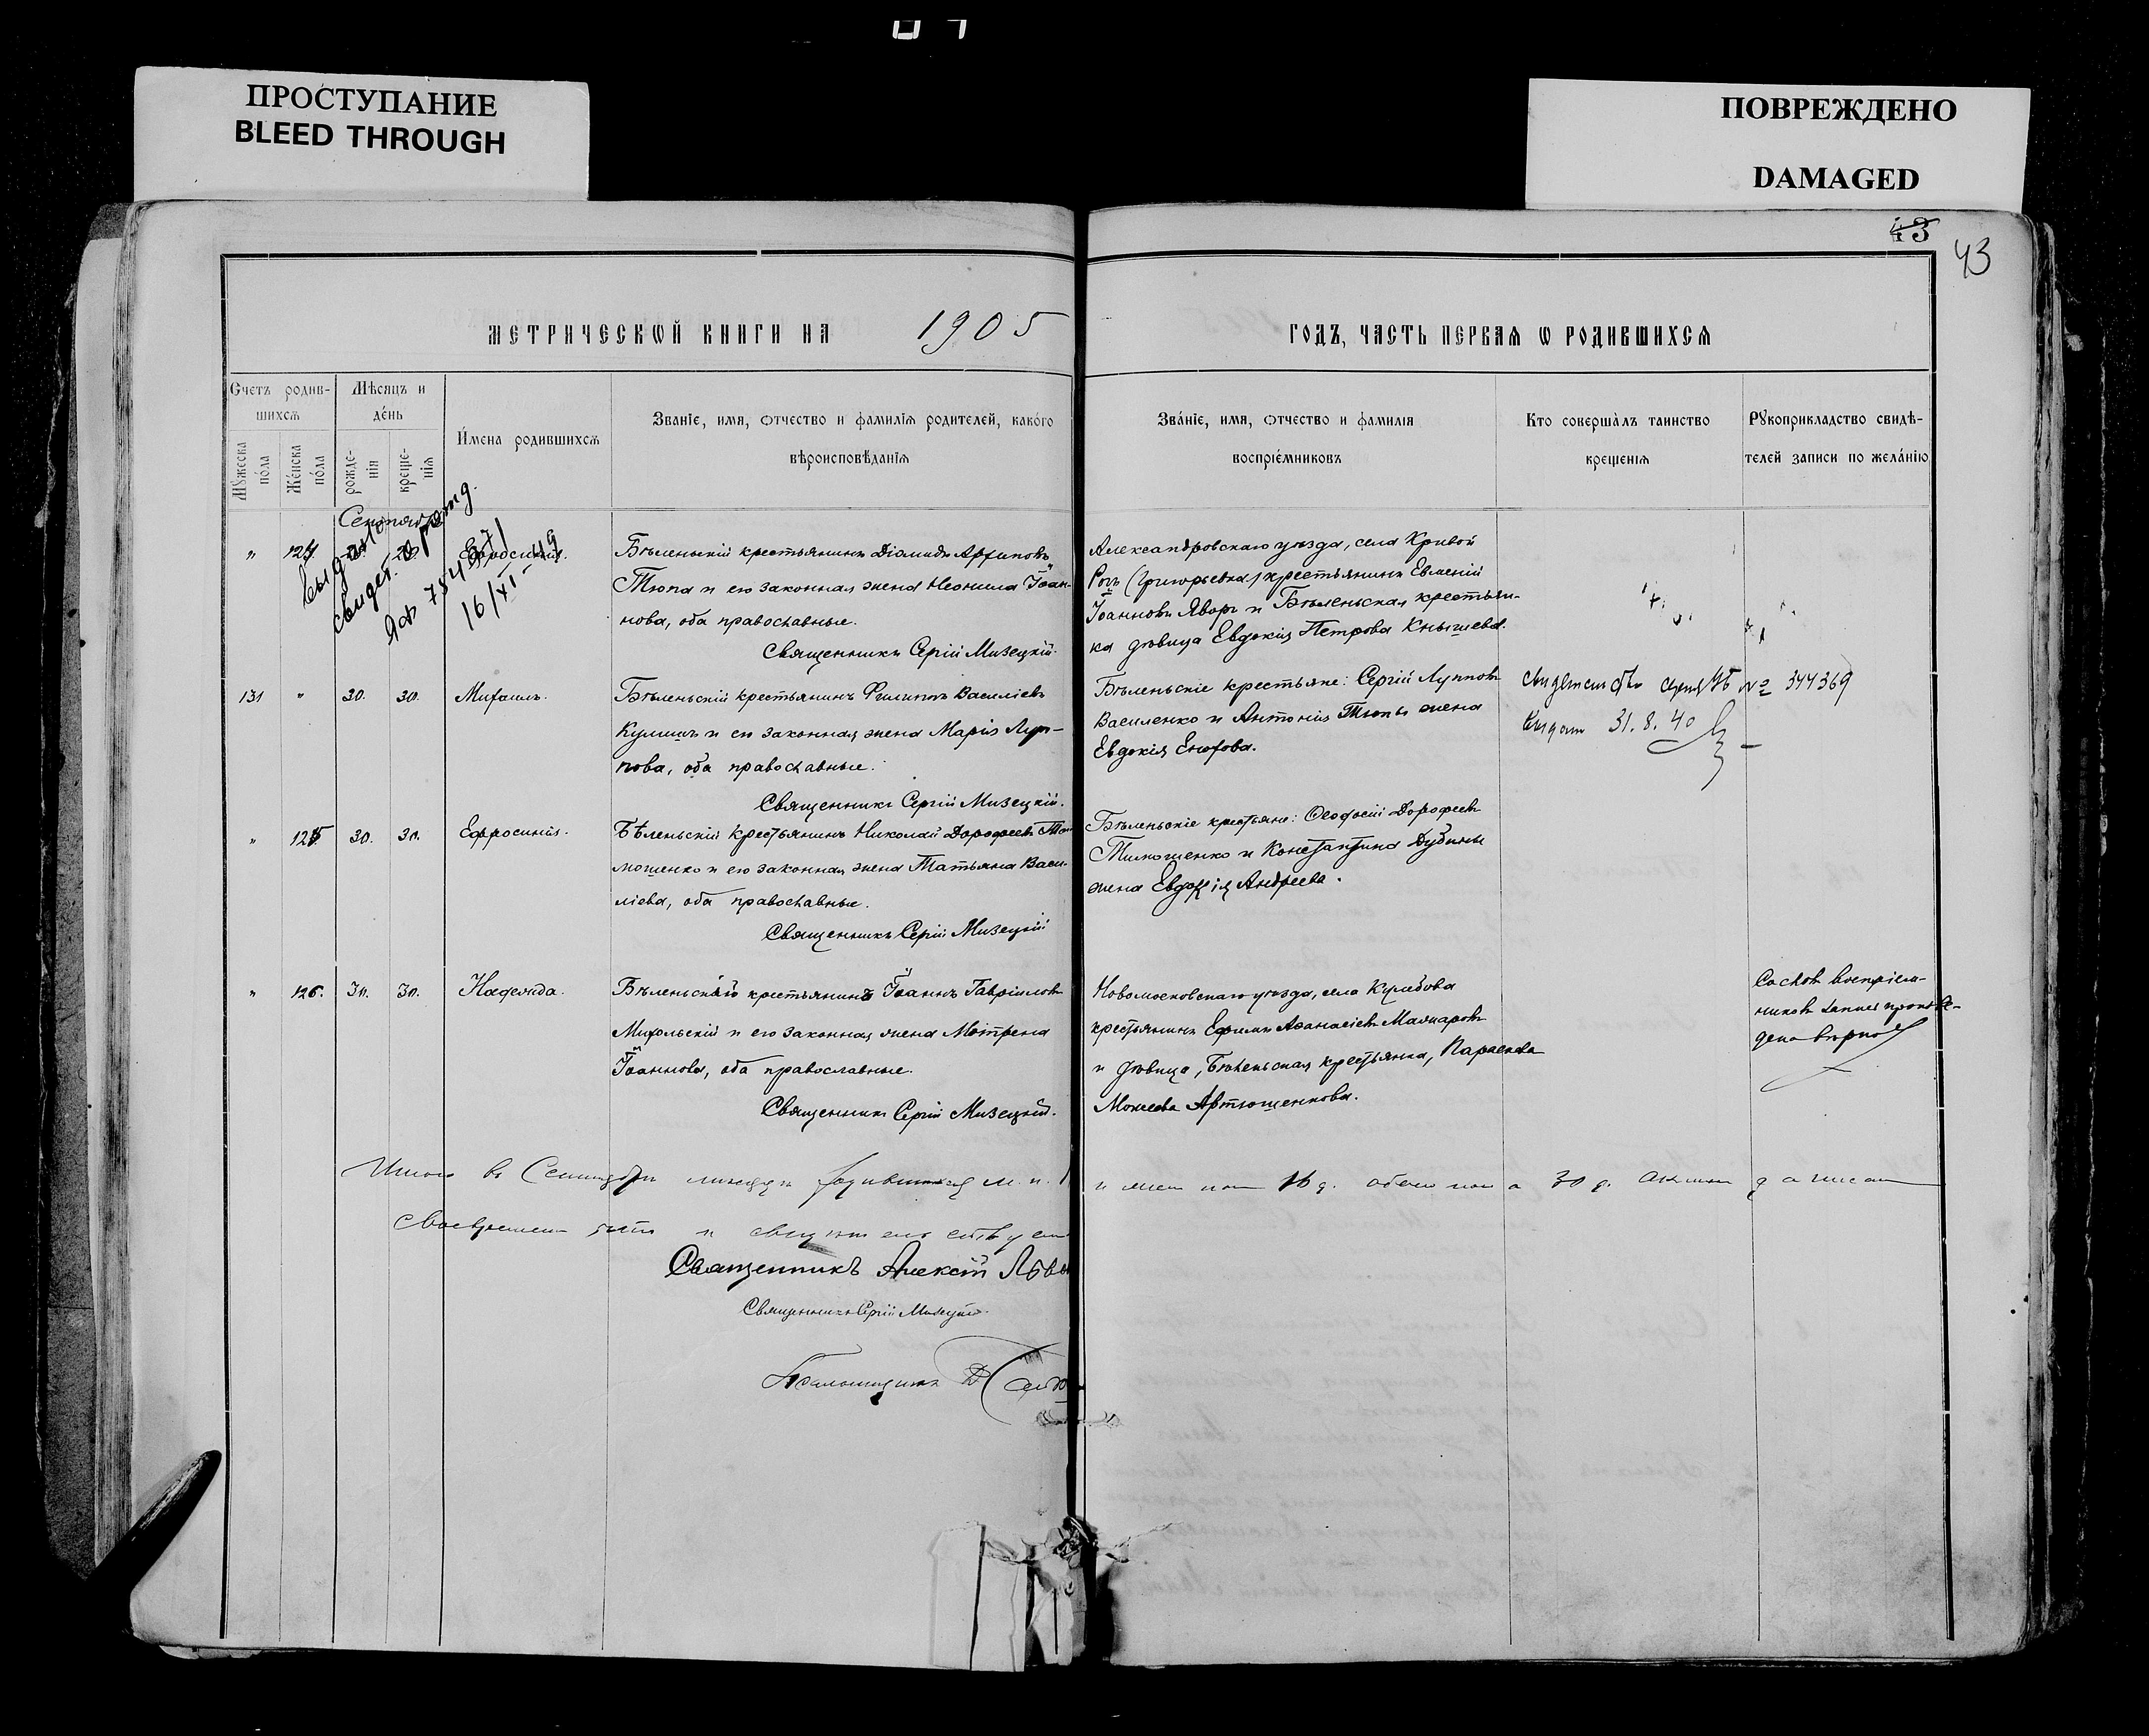 ПРОСТУПАНИЕ
BLEED THROUGH
ПОВРЕЖДЕНО
DAMAGED
43
43
МЕТРИЧЕСКѠЙ КНИГИ НА 1905 ГОДЪ, ЧАСТЬ ПЕРВАѦ Ѡ РОДИВШИХСѦ
Счетъ родив-
шихсѧ
Мꙋжеска пола
Женска пола
Мѣсяцъ и
день
рожде-
нія
креще-
нія
Имена родившихсѧ
Званіе, имя, ѡтчество и фамилія родителей, какого
вѣроисповѣданія
Званіе, имя, ѡтчество и фамилія
воспріемниковъ
Кто совершалъ таинство
крещенія
Рꙋкоприкладство свидѣ-
телей записи по желанію
Выдано
свидет.
16/XI-49
" 124
Бѣленьскій крестьянинъ Діомидъ
Тюпа и его законная жена Неонила Іоан-
нова, оба православные.
Священникъ Сергій Мизецкій.
Александровскаго уѣзда, села Кривой
Рогъ (Григорьевка) крестьянинъ Евменій
Іоанновъ Яворъ и Бѣленьская крестьян-
ка дѣвица Евдокія Петрова Кнышева.
131 " 30. 30. Михаилъ.
Бѣленьскій крестьянинъ Филиппъ Василіевъ
Кулишъ и его законная жена Марія Луп-
пова, оба православные.
Священникъ Сергій Мизецкій.
Бѣленьскіе крестьяне: Сергій Лупповъ
Василенко и Антонія Тюпы жена
Евдокія Енохова.
№ 344369
Выдан 31.8.40
" 125. 30. 30. Ефросинія.
Бѣленьскій крестьянинъ Николай Дорофеевъ Ти-
мошенко и его законная жена Татьяна Васи-
ліева, оба православные.
Священникъ Сергій Мизецкій
Бѣленьскіе крестьяне: Ѳеодосій Дорофеевъ
Тимошенко и Константина Дубины
жена Евдокія Андреева.
" 126. 30. 30. Надежда.
Бѣленьскій крестьянинъ Іоаннъ Гавріиловъ
Михольскій и его законная жена Мотрона
Іоаннова, оба православные.
Священникъ Сергій Мизецкій.
Новомосковскаго уѣзда, села Кулебова
крестьянинъ Ефимъ Аѳанасіевъ Маляаровъ
и дѣвица, Бѣленьская крестьянка, Параскева
Мокеева Артюшенкова.
Словъ воспріем-
никовъ
вѣрно
Итого въ Сентябрѣ мѣсяцѣ родившихся м. п.
и жен пол 16 д. обоего пола 30 д.
Священникъ Алексій
Священникъ Сергій Мизецкій.
Псаломщикъ